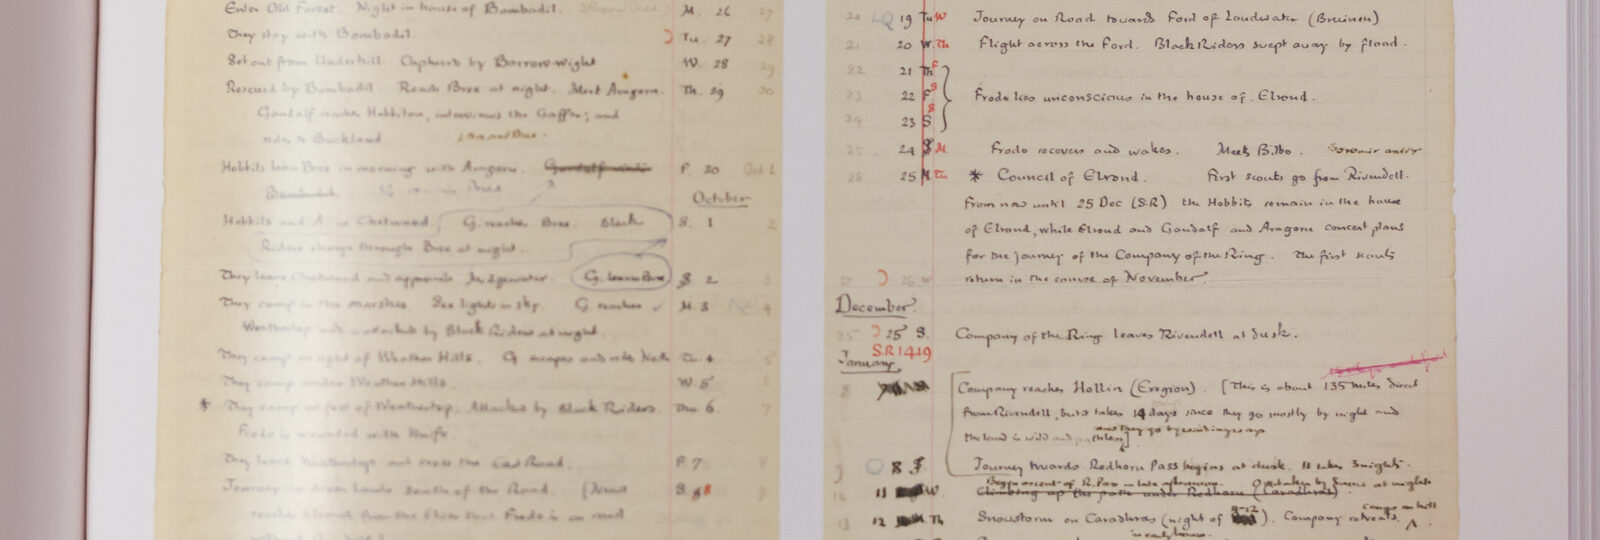 Enter Old Forest. Night in house of Bombadil. M. 26 27
They stay with Bombadil Tu. 27 28
Set out from Underhill. Captured by Barrow-wight W. 28 29
Rescued by Bombadil. Reach Bree at night. Meet Aragorn. Th. 29 30
Gandalf reaches Hobbiton, interviews the Gaffer; and
rides to Buckland.
Hobbits leave Bree in morning with Aragorn. F. 30 Oct 1
Bombadil Bree
October
Hobbits and A. in Chetwood. G. reaches Bree. Black S. 1 2
Riders charge through Bree at night.
They leave Chetwood and approach G. leaves Bree S. 2 3
They camp in the marshes. See lights in sky. G reaches M. 3 4
Weathertop and is attacked by Black Riders at night.
They camp in sight of Weather Hills. G escapes and rides North Tu. 4 5
They camp under Weather Hills. W. 5 6
* They camp at foot of Weathertop. Attacked by Black Riders 6. 7
Frodo is wounded with knife.
They leave Weathertop and cross the East Road. F. 7 8
Journey in lands south of the Road. S. 8 9
reaches Elrond from the Elves that Frodo is on road
20 19 Tu W Journey on Road towards Ford of Loudwater (Bruinen)
21 20 W. Th Flight across the Ford. Black Riders swept away by flood.
22 21 Th F
23 22 F S Frodo lies unconscious in the house of Elrond.
24 23 S S
25 24 S M Frodo recovers and wakes. Meets Bilbo.
26 25 M Tu * Council of Elrond. First scouts go from Rivendell.
From now until 25 Dec (S.R) the Hobbits remain in the house
of Elrond, while Elrond and Gandalf and Aragorn concert plans
for the journey of the Company of the Ring. The first scouts
27 26 W return in the course of November.
December
25 25 S. Company of the Ring leaves Rivendell at dusk.
S.R 1419
January
8 Company reaches Hollin (Eregion). [This is about 135 miles direct
from Rivendell, but it takes 14 days since they go mostly by night and
and they go by winding ways
the land is wild and pathless]
9 8 Journey towards Redhorn Pass begins at dusk. It takes 3 nights.
Begin ascent of R. Pass in late afternoon. Overtaken by snow at night
12 11 W. Climbing up the path under Redhorn (Caradhras)
camps on hill
13 12 Th Snowstorm on Caradhras (night of 11-12). Company retreats
in early hours.